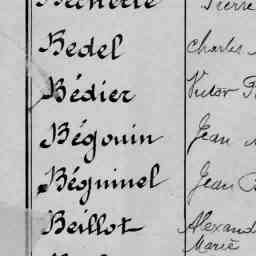 Pierre
Bedel Charles
Bédier Victor
Bégouin Jean
Béguinel Jean
Beillot Alexand
Marie